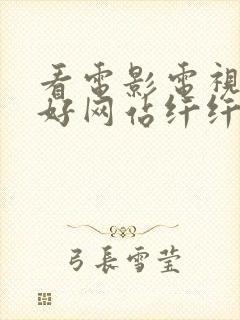 看電影電視
好网佔纤纤
弓長雪莹